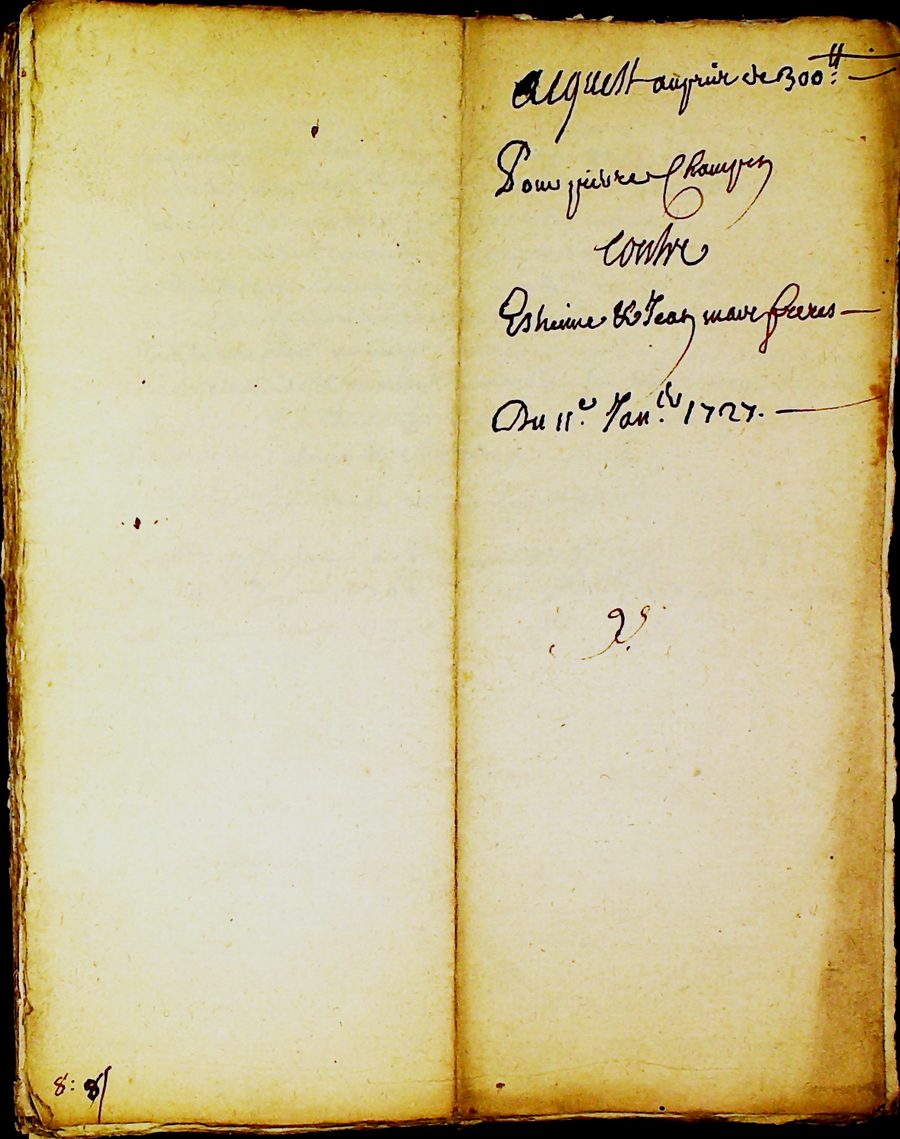 Acquest au prix de 300 ₶
Pour pierre Champen
Contre
Estienne & Jean mave freres
Du 11e Janer 1727.
8: 8